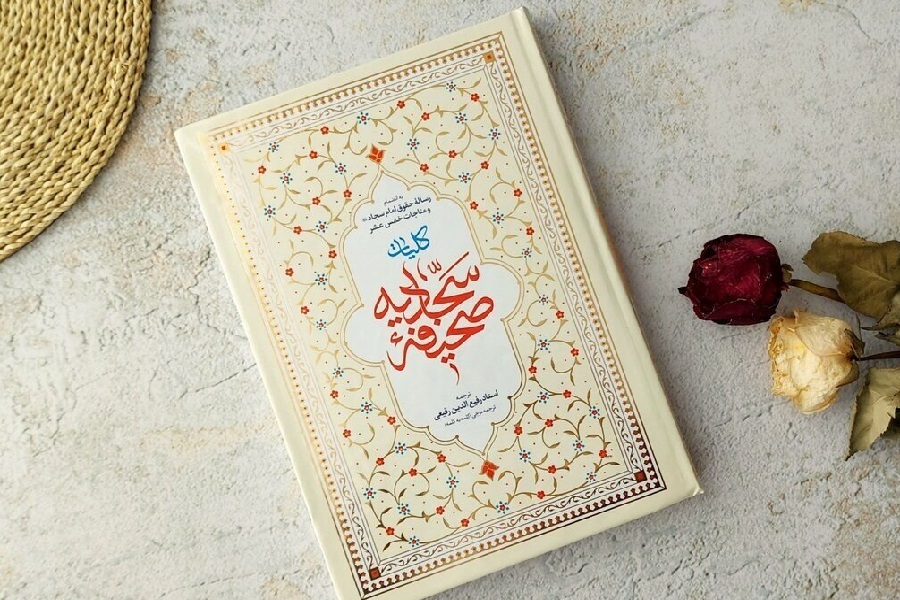 به انضمام
رسالهٔ حقوق امام سجاد
و مناجات خمس عشر
کلیات
صحیفهٔ سجادیه
ترجمه
استاد رفیع الدین رفیعی
ترجمه